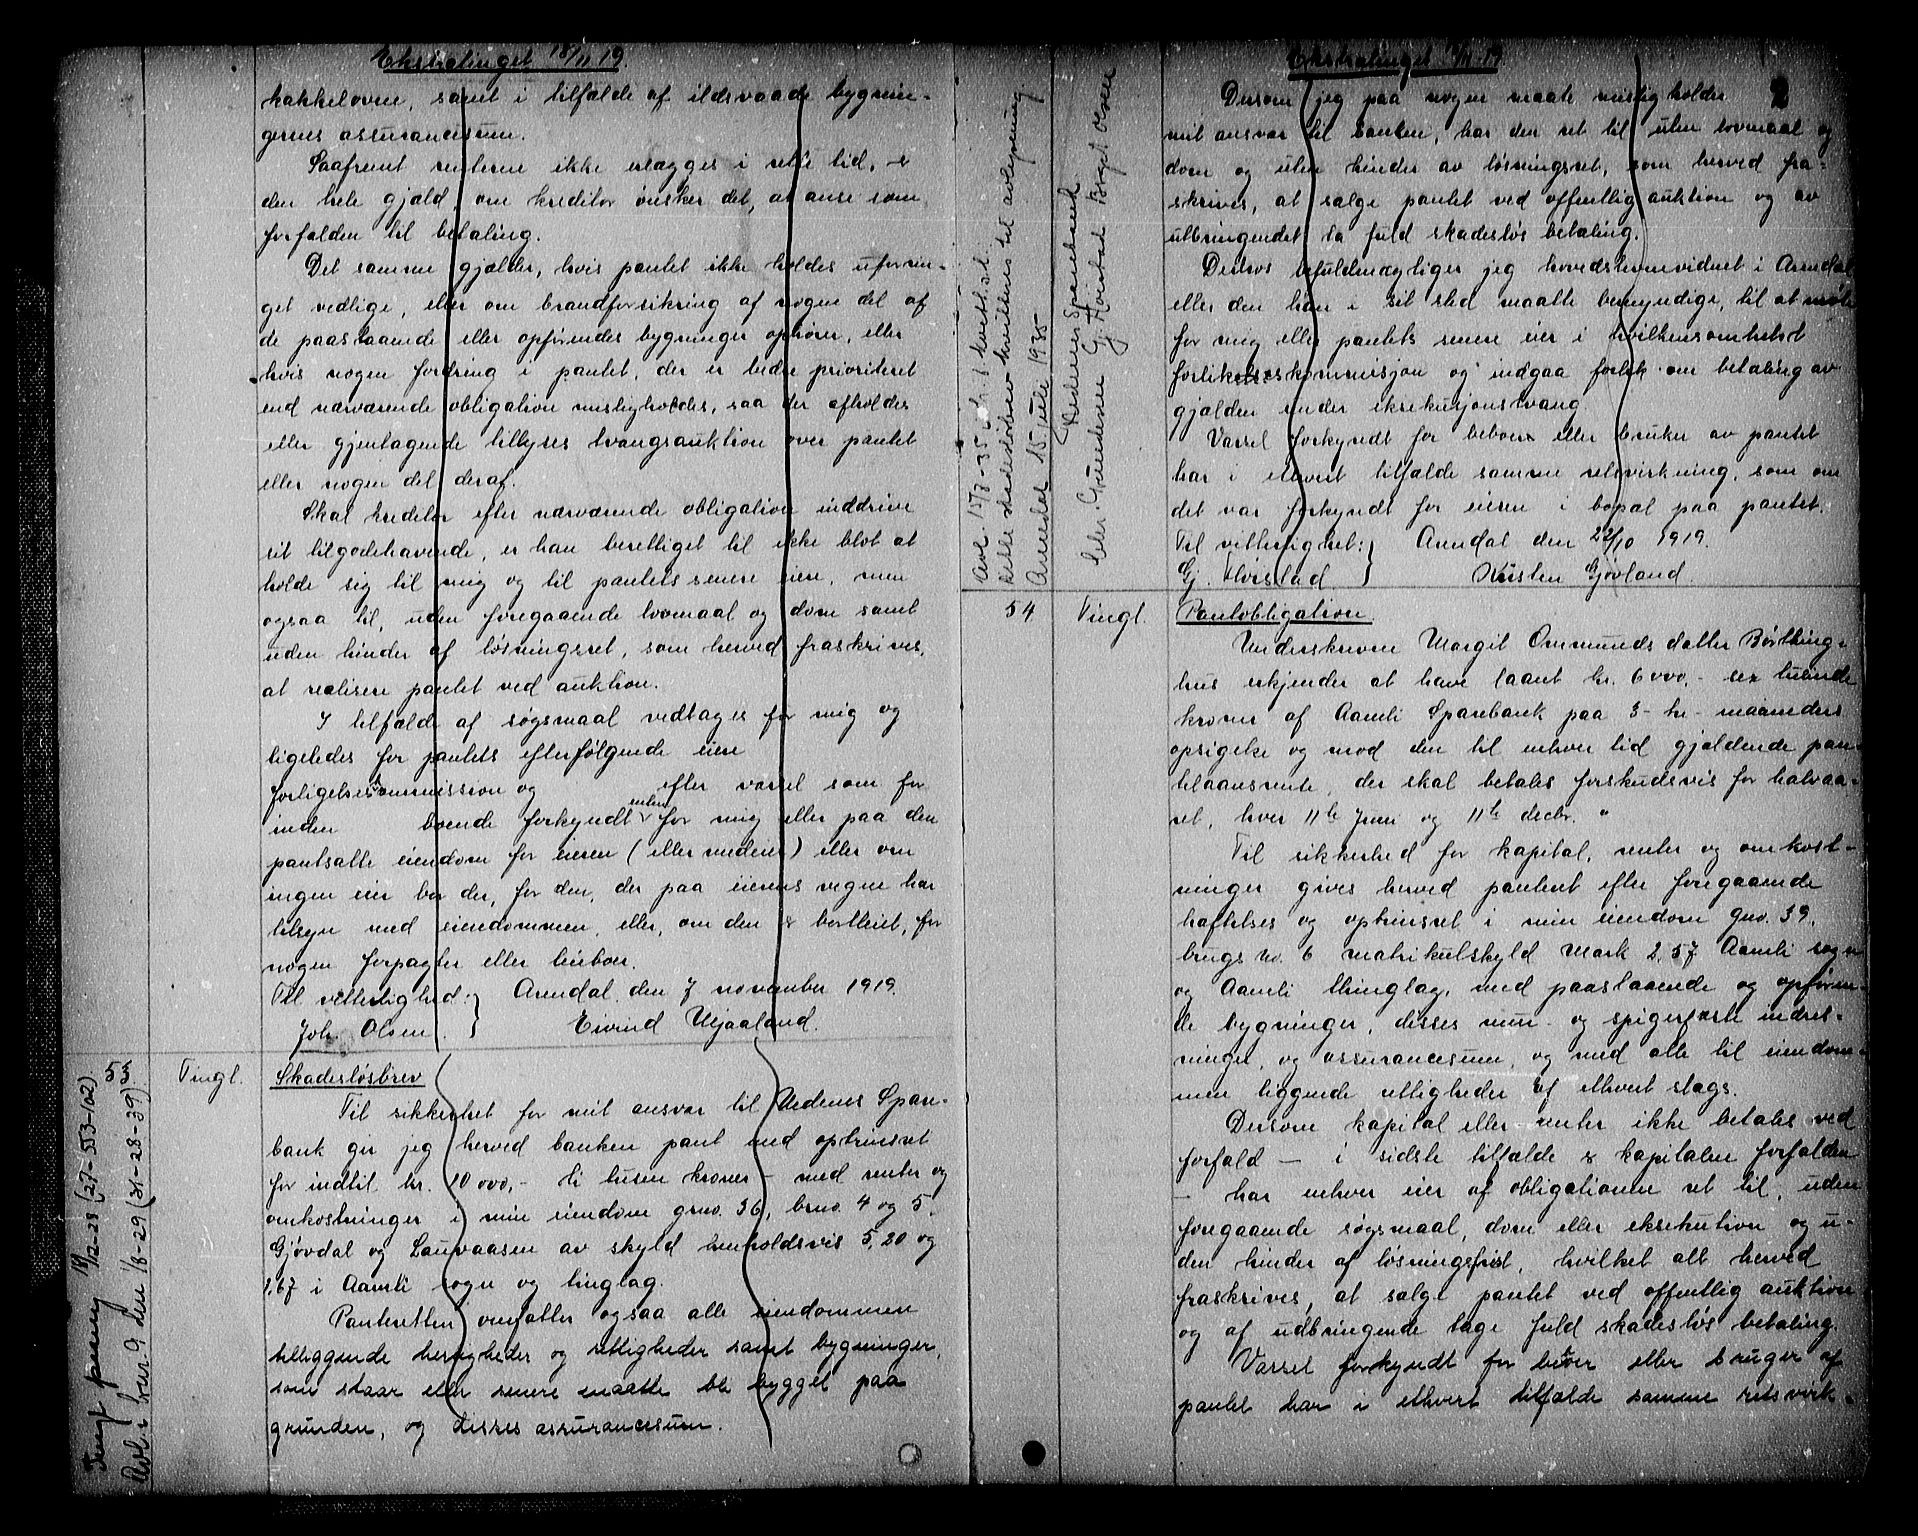 Ekstratinget 18/11 19
kakkelovne, samt i tilfælde af ildsvaade bygnin-
gernes assurancesum.
Saafremt renterne ikke erlægges i rette tid, er
den hele gjæld, om kreditor ønsker det, at anse som
forfalden til betaling.
Det samme gjælder, hvis pantet ikke holdes uforrin-
get vedlige, eller om brandforsikring af nogen del af
de paastaaende eller opførendes bygninger ophører, eller
hvis nogen fordring i pantet, der er bedre prioriteret
end nærværende obligation misligholdes, saa der afholdes
eller gjentagende tillyses tvangsauktion over pantet
eller nogen del deraf.
Skal kreditor efter nærværende obligation inddrive
sit tilgodehavende, er han berettiget til ikke blot at
holde sig til mig og til pantets senere eiere, men
ogsaa til, uden foregaaende lovmaal og dom samt
uden hinder af løsningsret, som herved fraskrives,
at realisere pantet ved auktion.
I tilfælde af søgsmaal vedtages for mig og
ligeledes for pantets efterfølgende eiere
forligelseskommission og efter varsel som for
inden boende forkyndt enten for mig eller paa den
pantsatte eiendom for eieren (eller enderne) eller om
ingen eier bor der, for den, der paa eierens vegne har
tilsyn med eiendommen, eller, om den er bortleiet, for
nogen forpagter eller leieboer.
Til vitterlighed: } Arendal, den 7 november 1919.
Joh. Olsen. Eivind Mjaaland.
53 Tingl. Skadesløsbrev
Til sikkerhet for mit ansvar til Nedenes Spare-
bank gir jeg herved banken pant med optrinsret
for indtil kr. 10 000,- ti tusen kroner - med renter og
omkostninger i min eiendom grno. 36, brno. 4 og 5,
Gjøvdal og Lauvaasen av skyld henholdsvis 5,20 og
1,67 i Aamli sogn og tinglag.
Panteretten omfatter ogsaa alle eiendommen
tilliggende herligheder og rettigheder samt bygninger,
som staar eller senere maatte bli bygget paa
grunden, og disses assurancesum.
18/12-28 (27-553-102)
Avl. i kver. 9 den 1/8-29 (31-28-39)
Ekstratinget 18/11-19
2
Dersom jeg paa nogen maate misligholder
mit ansvar til banken, har den ret til uten lovmaal og
dom og uten hinder av løsningsret, som herved fra-
skrives, at sælge pantet ved offentlig auktion og av
utbringendet ta fuld skadesløs betaling.
Derhos befuldmægtiger jeg hovedstevnevidnet i Arendal
eller den han i sit sted maatte bemyndige, til at møte
for mig eller pantets senere eier i hvilkensomhelst
forlikelseskommissjon og indgaa forlik om betaling av
gjælden under eksekusjonstvang.
Varsel forkyndt for beboer eller bruker av pantet
har i ethvert tilfælde samme retsvirkning, som om
det var forkyndt for eieren i bopæl paa pantet.
Til vitterlighet: } Arendal den 22/10 1919.
Gj. Høistad Kristen Gjøvland
Avl. 15/7-35
Dette skadesløsbrev kvitteres til avlysning
Arendal 15 juli 1935
Nedenes Sparebank
Chr. Gundersen Gj. Høistad Birgit Olsen
54 Tingl. Pantobligation.
Underskrevne Margit Ommundsdatter Børtting-
hus erkjender at have laant kr. 6000,- sex tusinde
kroner af Aamli Sparebank paa 3- tre- maaneders
opsigelse og mod den til enhver tid gjældende pan-
telaansrente, der skal betales forskudsvis for halvaa-
ret, hver 11te juni og 11te decbr. "
Til sikkerhed for kapital, renter og omkost-
ninger gives herved panteret efter foregaaende
hæftelser og optrinsret i min eiendom gno. 39,
brugs no. 6 matrikulskyld Mark 2,57 Aamli sogn
og Aamli thinglag, med paastaaende og opføren-
de bygninger, disses mur- og spigerfaste indret-
ninger, og assurancesum, og med alle til eiendom-
men liggende rettigheder af ethvert slags.
Dersom kapital eller renter ikke betales ved
forfald - i sidste tilfælde er kapitalen forfalden
- har enhver eier af obligationen ret til, uden
foregaaende søgsmaal, dom eller eksekution og u-
den hinder af løsningsfrist, hvilket alt herved
fraskrives, at sælge pantet ved offentlig auktion
og af udbringende tage fuld skadesløs betaling.
Varsel forkyndt for beboer eller bruger af
pantet har i ethvert tilfælde samme retsvirk-